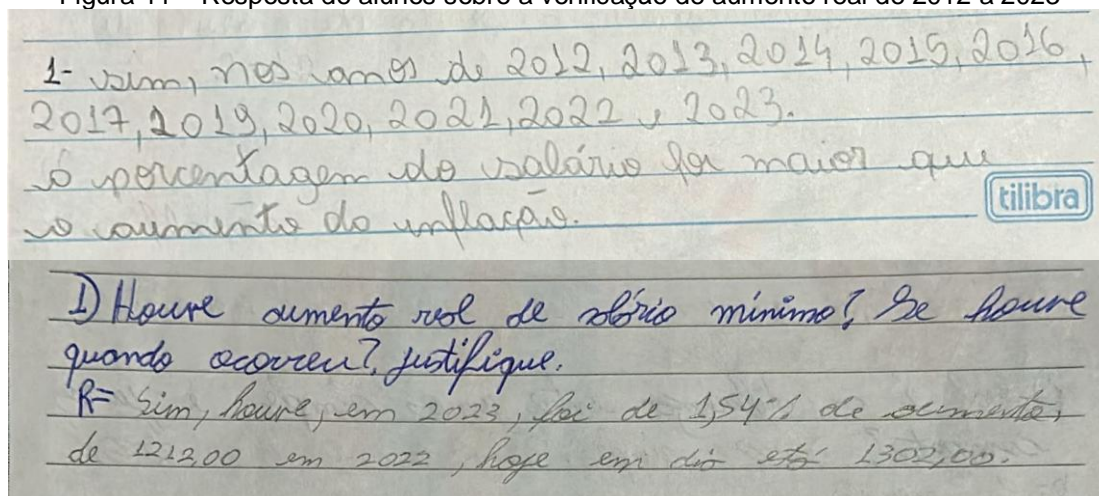 Figura 11 – Resposta de alunos sobre a verificação do aumento real de 2012 a 2023
1- sim, nos anos de 2012, 2013, 2014, 2015, 2016,
2017, 2019, 2020, 2021, 2022 e 2023.
porcentagem do salário foi maior que
o aumento da inflação.
tilibra
1) Houve aumento real de salário mínimo? Se houve
quando ocorreu? justifique.
R= Sim, houve, em 2023, foi de 1,54% de aumento,
de 1212,00 em 2022, hoje em dia está 1302,00.